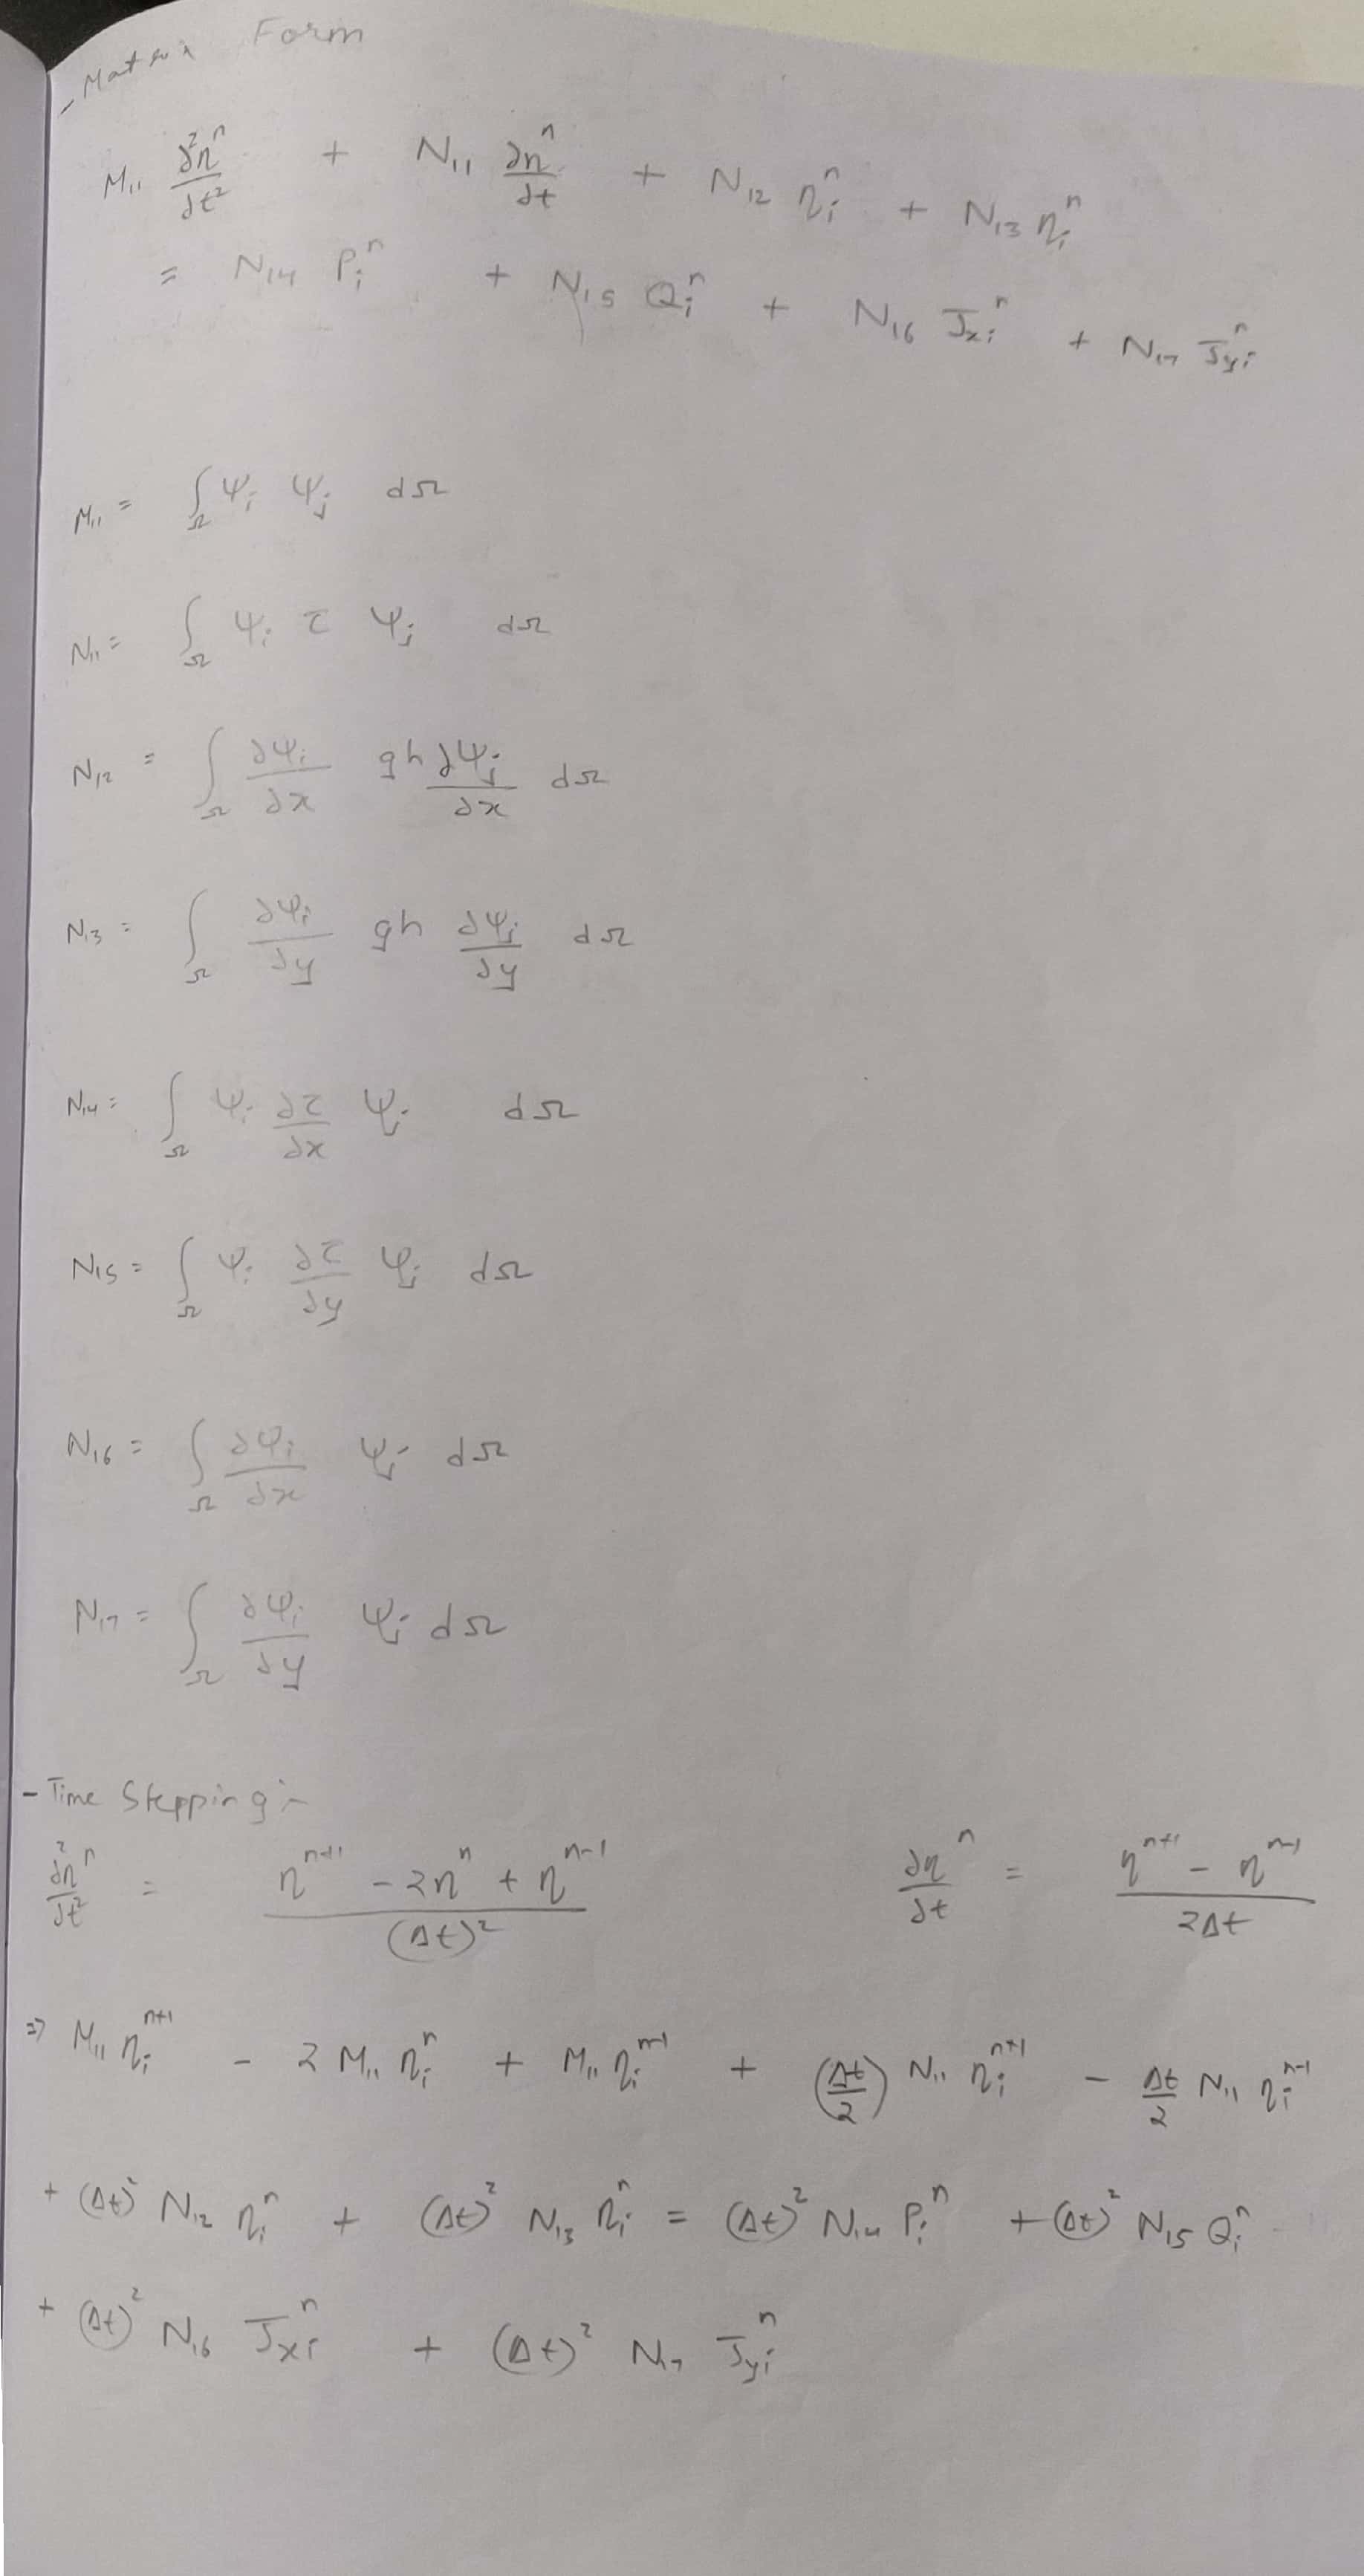 - Matrix Form
M₁₁ ∂²η^n/∂t² + N₁₁ ∂η^n/∂t + N₁₂ ηᵢ^n + N₁₃ ηᵢ^n
= N₁₄ Pᵢ^n + N₁₅ Qᵢ^n + N₁₆ Jₓᵢ^n + N₁₇ J_yᵢ^n
M₁₁ = ∫_Ω ψᵢ ψⱼ dΩ
N₁₁ = ∫_Ω ψᵢ τ ψⱼ dΩ
N₁₂ = ∫_Ω ∂ψᵢ/∂x gh ∂ψⱼ/∂x dΩ
N₁₃ = ∫_Ω ∂ψᵢ/∂y gh ∂ψⱼ/∂y dΩ
N₁₄ = ∫_Ω ψᵢ ∂τ/∂x ψⱼ dΩ
N₁₅ = ∫_Ω ψᵢ ∂τ/∂y ψⱼ dΩ
N₁₆ = ∫_Ω ∂ψᵢ/∂x ψⱼ dΩ
N₁₇ = ∫_Ω ∂ψᵢ/∂y ψⱼ dΩ
- Time Stepping :-
∂²η^n/∂t² = (η^(n+1) - 2η^n + η^(n-1))/(Δt)² ∂η^n/∂t = (η^(n+1) - η^(n-1))/2Δt
⇒ M₁₁ ηᵢ^(n+1) - 2 M₁₁ ηᵢ^n + M₁₁ ηᵢ^(n-1) + (Δt/2) N₁₁ ηᵢ^(n+1) - Δt/2 N₁₁ ηᵢ^(n-1)
+ (Δt)² N₁₂ ηᵢ^n + (Δt)² N₁₃ ηᵢ^n = (Δt)² N₁₄ Pᵢ^n + (Δt)² N₁₅ Qᵢ^n
+ (Δt)² N₁₆ Jₓᵢ^n + (Δt)² N₁₇ J_yᵢ^n